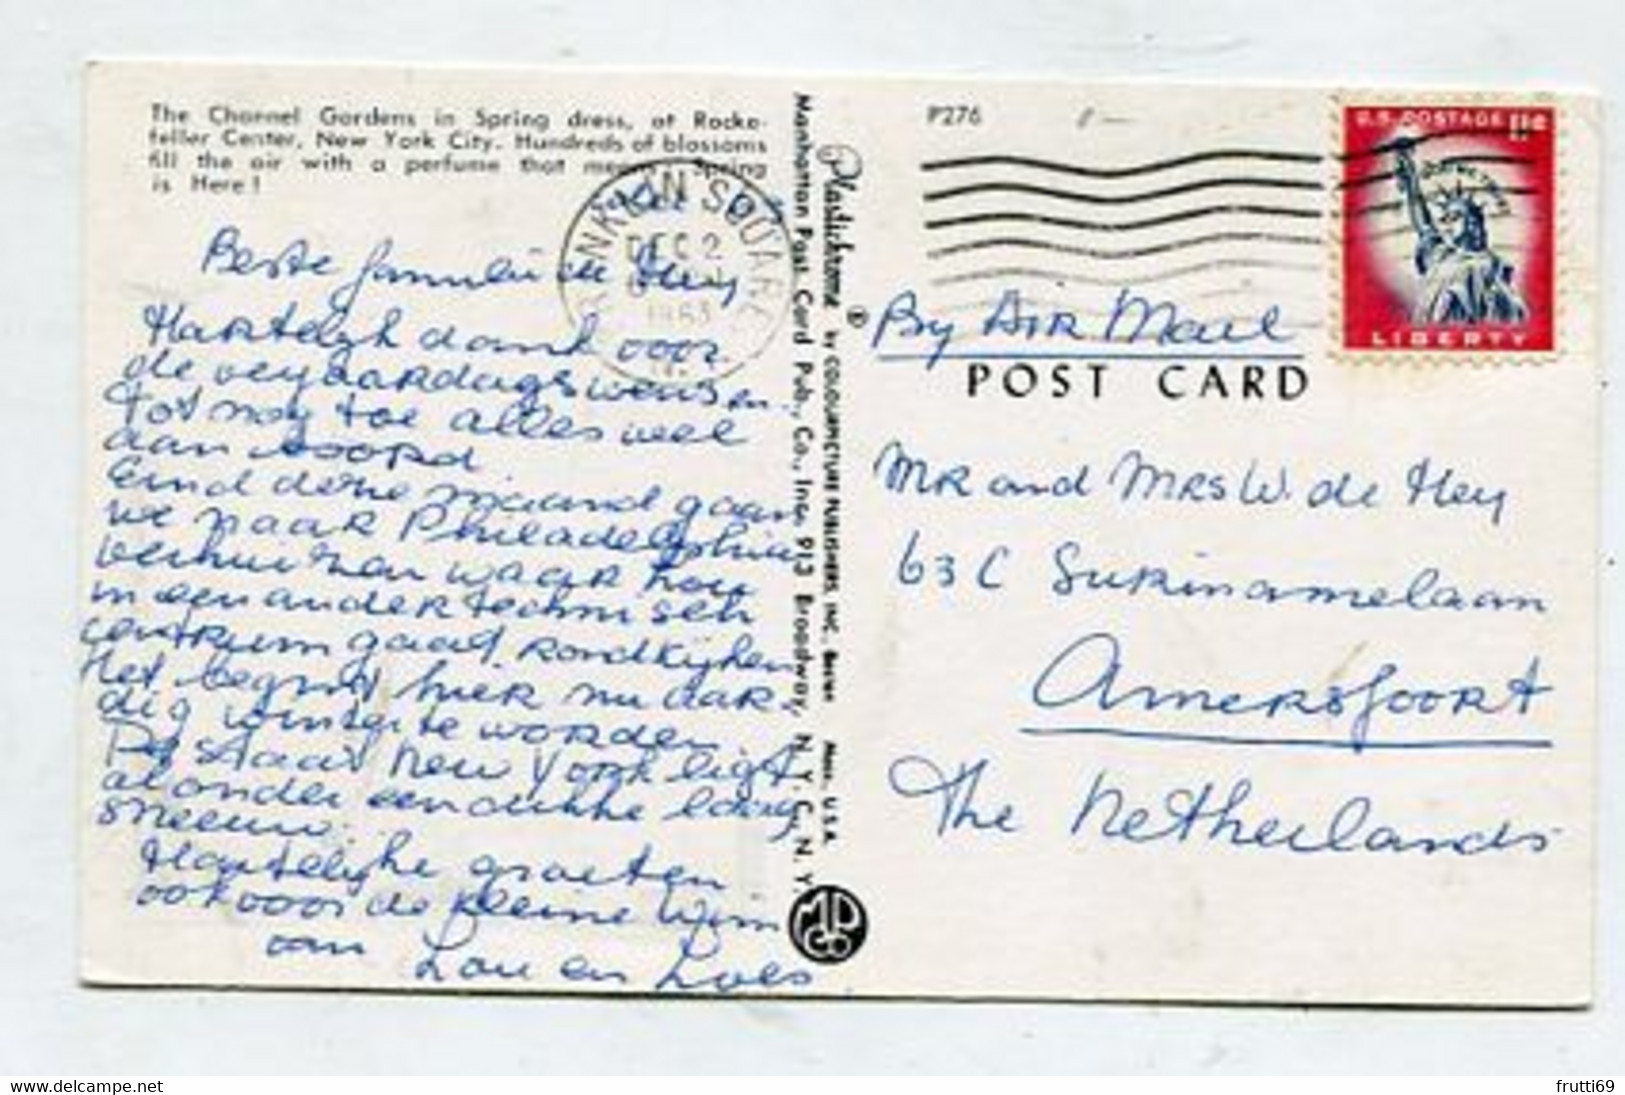 The Channel Gardens in Spring dress, at Rocke-
feller Center, New York City. Hundreds of blossoms
fill the air with a perfume that Spring
is Here!
Beste familie de Hey
Hartelijk dank voor
de verjaardagswensen.
Tot nog toe alles wel
aan boord.
Eind deze maand gaan
we naar Philadelphia
verhuizen waar Lou
in een ander technisch
centrum gaat rondkijken
Het begint hier nu aar-
dig winter te worden
De staat New York ligt
al onder een dikke laag
sneeuw.
Hartelijke groeten
ook voor de kleine Wim
van Lou en Loes
FRANKLIN SQUARE
DEC 2
1963
Plastichrome ® by COLOURPICTURE PUBLISHERS, INC. Boston Mass. U.S.A.
Manhattan Post Card Pub. Co., Inc. 913 Broadway, N.Y.C. N.Y.
MPCo
P276
U.S. POSTAGE 11¢
IN GOD WE TRUST
LIBERTY
By Air Mail
POST CARD
MR and MRS W. de Hey
63 C Surinamelaan
Amersfoort
The Netherlands
frutti69